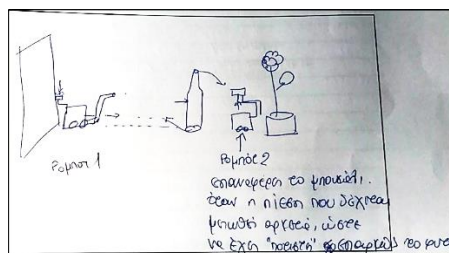 Ρομπότ 1
Ρομπότ 2
επαναφέρει το μπουκάλι,
όταν η πίεση που δέχεται
μειωθεί αρκετά, ώστε
να έχει "ποτιστεί" επαρκώς το φυτό